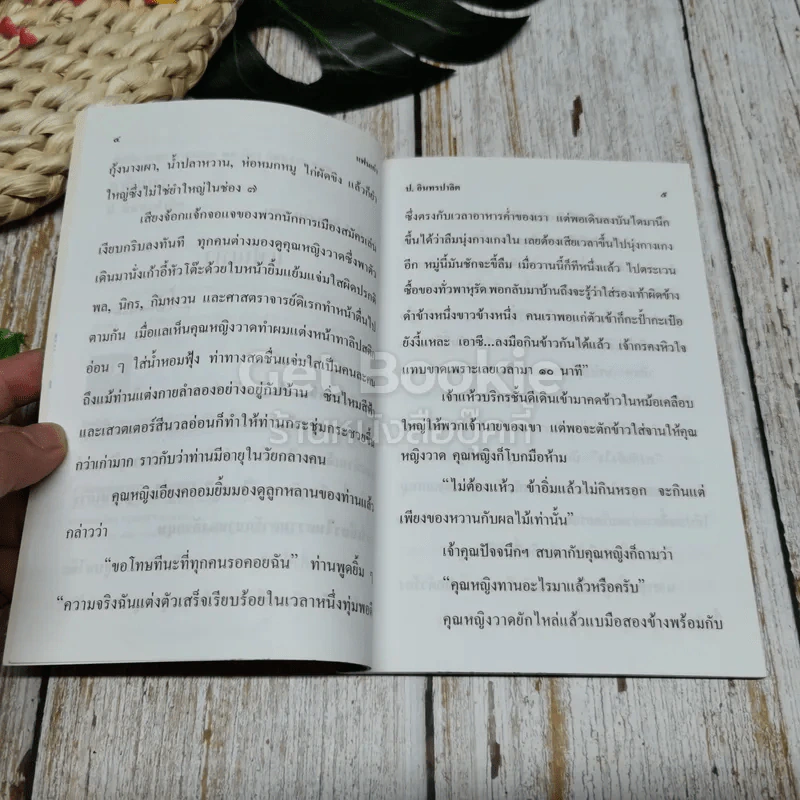 ๔
กุ้งนางเผา, น้ำปลาหวาน, ห่อหมกหมู ไก่ผัดขิง แล้วก็ยำ
ใหญ่ซึ่งไม่ใช่ยำใหญ่ในช่อง ๗
เสียงจ้อกแจ้กจอแจของพวกนักการเมืองสมัครเล่น
เงียบกริบลงทันที ทุกคนต่างมองดูคุณหญิงวาดซึ่งพาตัว
เดินมานั่งเก้าอี้หัวโต๊ะด้วยใบหน้ายิ้มแย้มแจ่มใสผิดปรกติ
พล, นิกร, กิมหงวน และศาสตราจารย์ดิเรกทำหน้าตื่นไป
ตามกัน เมื่อแลเห็นคุณหญิงวาดทำผมแต่งหน้าทาลิปสติค
อ่อน ๆ ใส่น้ำหอมฟุ้ง ท่าทางสดชื่นแจ่มใสเป็นคนละคน
ถึงแม้ท่านแต่งกายลำลองอย่างอยู่กับบ้าน ซิ่นไหมสีตึก
และเสวตเตอร์สีนวลอ่อนก็ทำให้ท่านกระชุ่มกระชวยขึ้น
กว่าเก่ามาก ราวกับว่าท่านมีอายุในวัยกลางคน
คุณหญิงเอียงคออมยิ้มมองดูลูกหลานของท่านแล้ว
กล่าวว่า
“ขอโทษทีนะที่ทุกคนรอคอยฉัน” ท่านพูดยิ้ม ๆ
“ความจริงฉันแต่งตัวเสร็จเรียบร้อยในเวลาหนึ่งทุ่มพอดี
ป. อินทรปาลิต
๕
ซึ่งตรงกับเวลาอาหารค่ำของเรา แต่พอเดินลงบันไดมานึก
ขึ้นได้ว่าลืมนุ่งกางเกงใน เลยต้องเสียเวลาขึ้นไปนุ่งกางเกง
อีก หมู่นี้มันชักจะขี้ลืม เมื่อวานนี้ก็ทีหนึ่งแล้ว ไปตระเวน
ซื้อของทั่วพาหุรัด พอกลับมาบ้านถึงจะรู้ว่าใส่รองเท้าผิดข้าง
ดำข้างหนึ่งขาวข้างหนึ่ง คนเราพอแก่ตัวเข้าก็กะป้ำกะเป๋อ
ยังงี้แหละ เอาซี...ลงมือกินข้าวกันได้แล้ว เจ้ากรคงหิวใจ
แทบขาดเพราะเลยเวลามา ๑๐ นาที”
เจ้าแห้วบริกรชั้นดีเดินเข้ามาคดข้าวในหม้อเคลือบ
ใหญ่ให้พวกเจ้านายของเขา แต่พอจะตักข้าวใส่จานให้คุณ
หญิงวาด คุณหญิงก็โบกมือห้าม
“ไม่ต้องแห้ว ข้าอิ่มแล้วไม่กินหรอก จะกินแต่
เพียงของหวานกับผลไม้เท่านั้น”
เจ้าคุณปัจจนึกฯ สบตากับคุณหญิงก็ถามว่า
“คุณหญิงทานอะไรมาแล้วหรือครับ”
คุณหญิงวาดยักไหล่แล้วแบมือสองข้างพร้อมกับ
Get Bookie
ร้านหนังสือบุ๊คกี้